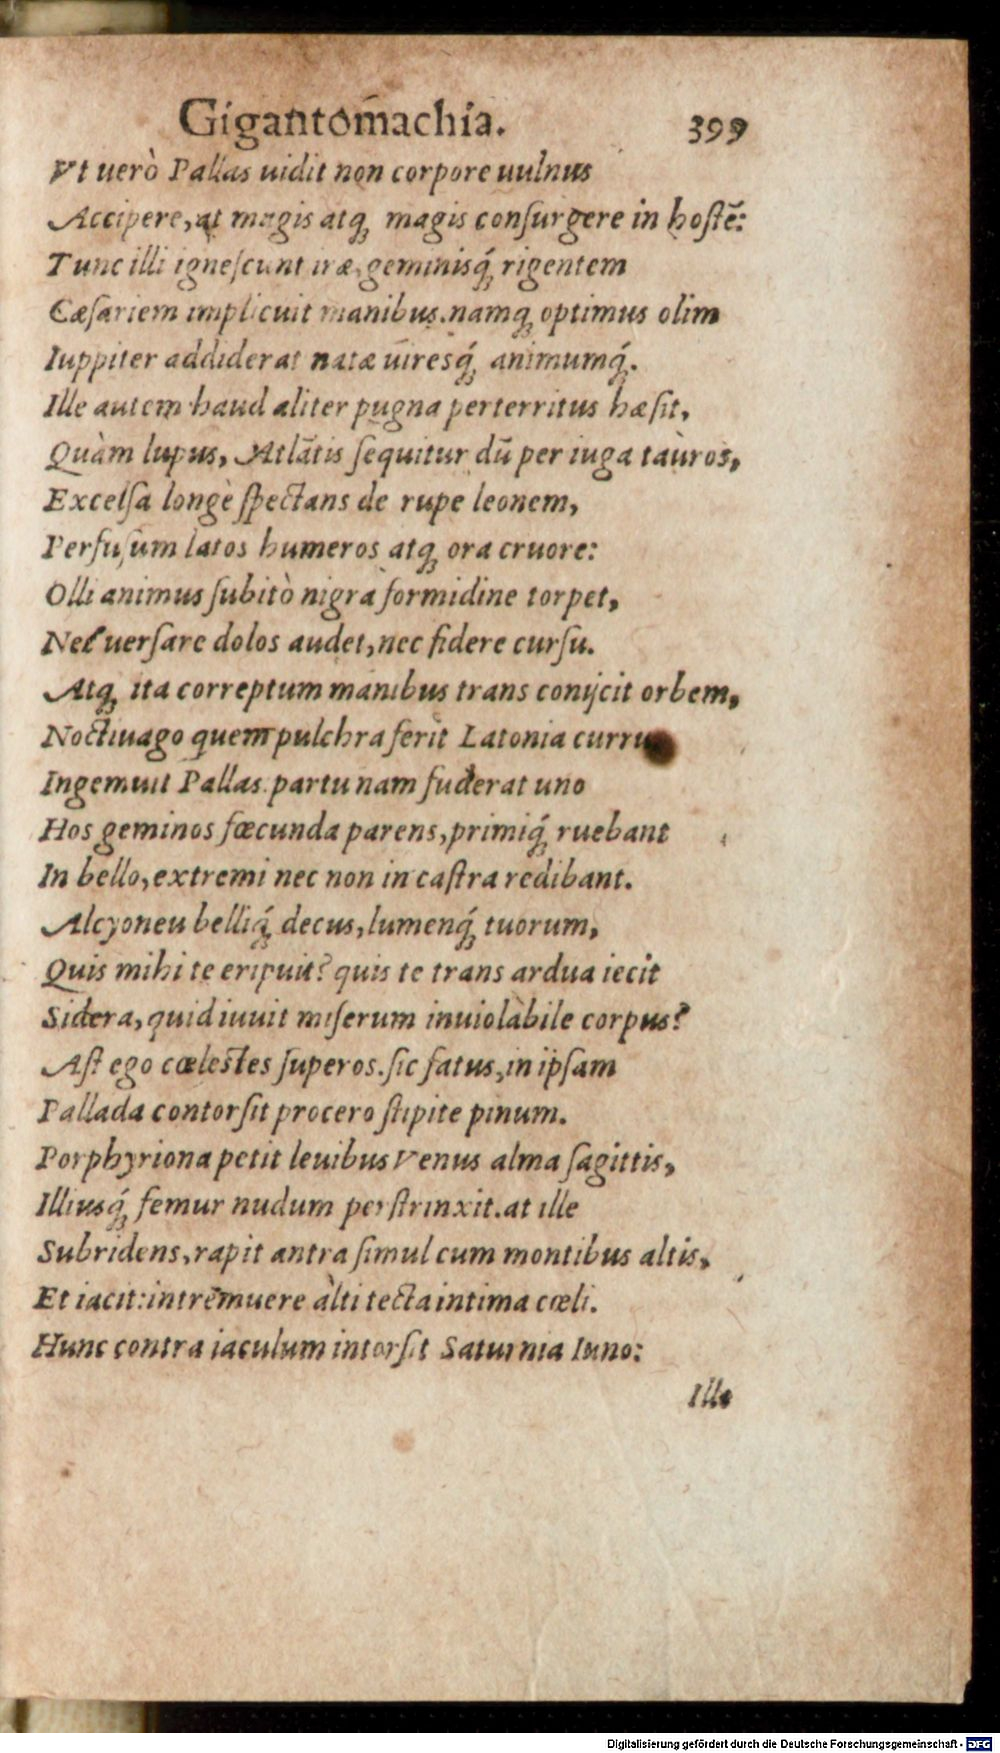 Gigantom̃achia. 399
Vt uerò Pallas uidit non corpore uulnus
Accipere, at magis atq; magis conſurgere in hoſtẽ:
Tunc illi igneſcunt iræ, geminisq́; rigentem
Cæſariem implicuit manibus. namq; optimus olim
Iuppiter addiderat natæ uiresq́; animumq́;.
Ille autem haud aliter pugna perterritus hæſit,
Quàm lupus, Atlãtis ſequitur dũ per iuga tauros,
Excelſa longè ſpectans de rupe leonem,
Perfuſum latos humeros atq; ora cruore:
Olli animus ſubitò nigra formidine torpet,
Nec uerſare dolos audet, nec fidere curſu.
Atq; ita correptum manibus trans conijcit orbem,
Noctiuago quem pulchra ferit Latonia curru
Ingemuit Pallas: partu nam fuderat uno
Hos geminos fœcunda parens, primiq́; ruebant
In bello, extremi nec non in caſtra redibant.
Alcyoneu belliq́; decus, lumenq́; tuorum,
Quis mihi te eripuit? quis te trans ardua iecit
Sidera, quid iuuit miſerum inuiolabile corpus?
Aſt ego cœleſtes ſuperos. ſic fatus, in ipſam
Pallada contorſit procero ſtipite pinum.
Porphyriona petit leuibus Venus alma ſagittis,
Illiusq́; femur nudum perſtrinxit. at ille
Subridens, rapit antra ſimul cum montibus altis,
Et iacit: intremuere alti tecta intima cœli.
Hunc contra iaculum intorſit Saturnia Iuno:
Ille
Digitalisierung gefördert durch die Deutsche Forschungsgemeinschaft - DFG